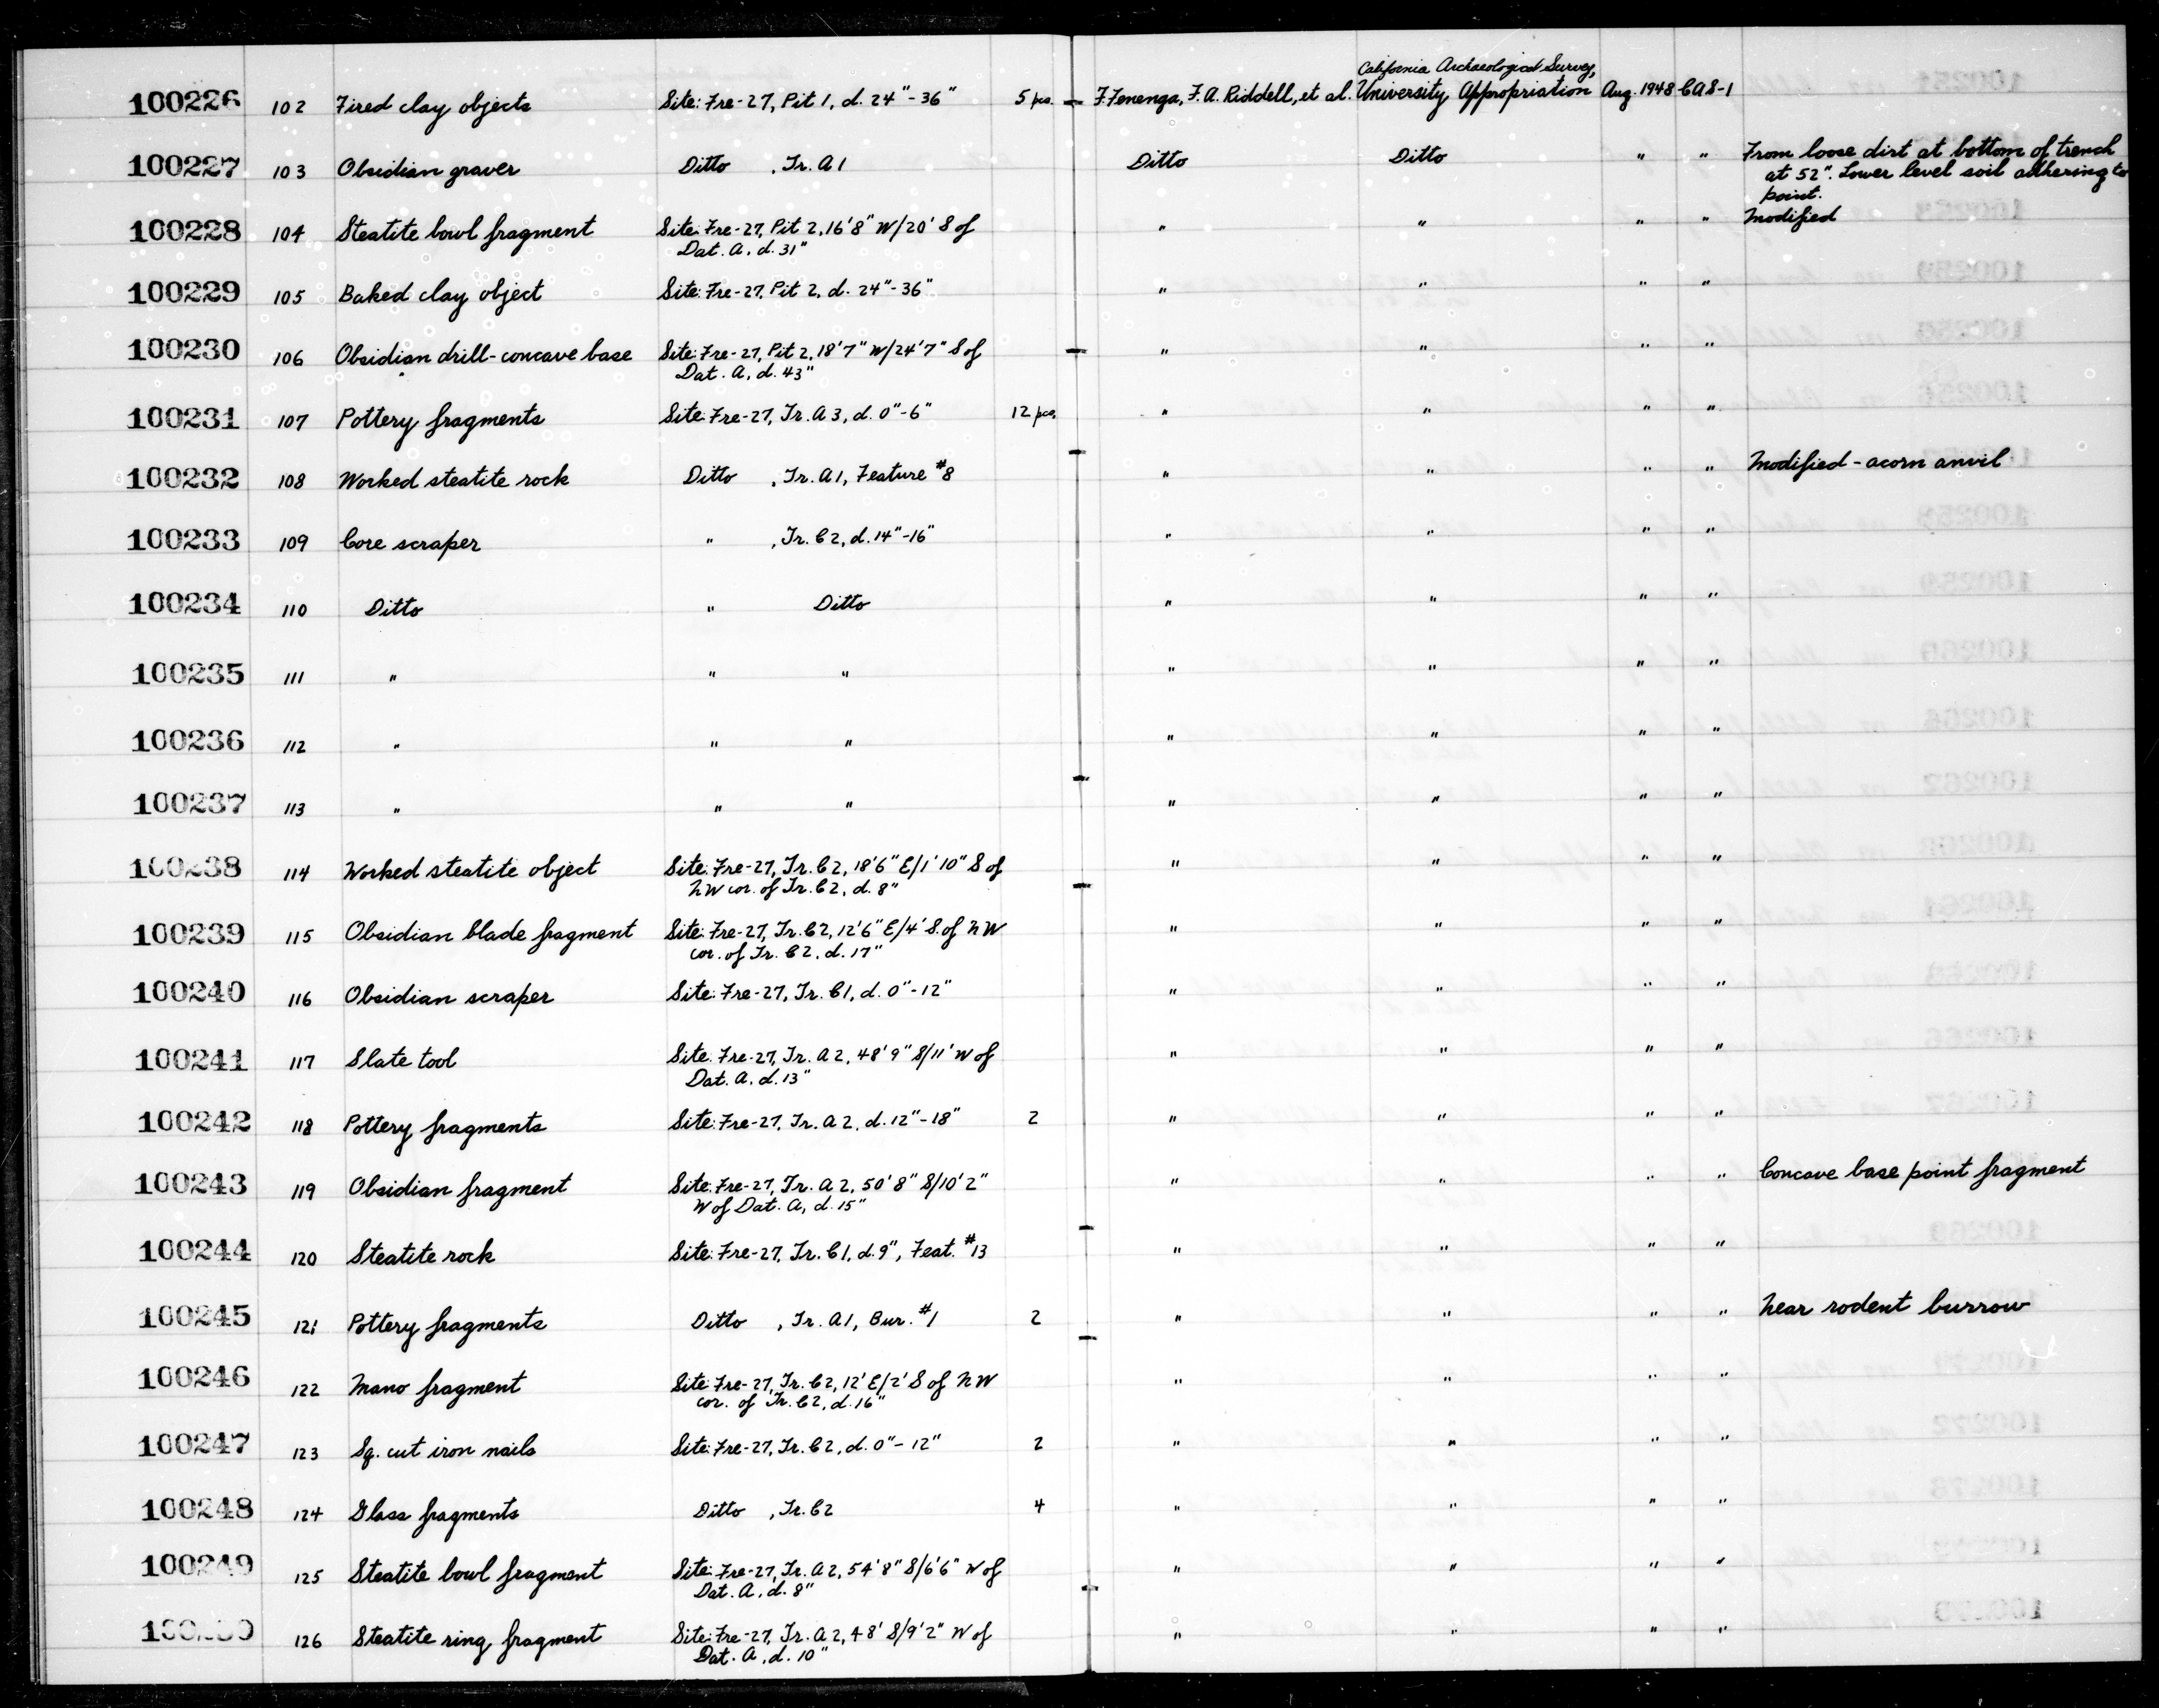 California Archaeological Survey,
100226 102 Fired clay objects Site: Fre-27, Pit 1, d. 24"-36" 5 pcs. F. Fenenga, F. A. Riddell, et al. University Appropriation Aug. 1948 CAS-1
100227 103 Obsidian graver Ditto , Tr. A1 Ditto Ditto " " From loose dirt at bottom of trench
at 52". Lower level soil adhering to
point.
100228 104 Steatite bowl fragment Site: Fre-27, Pit 2, 16'8" W/20' S of " " " " Modified
Dat. A, d. 31"
100229 105 Baked clay object Site: Fre-27, Pit 2, d. 24"-36" " " " "
100230 106 Obsidian drill-concave base Site: Fre-27, Pit 2, 18'7" W/24'7" S of " " " "
Dat. A, d. 43"
100231 107 Pottery fragments Site: Fre-27, Tr. A3, d. 0"-6" 12 pcs. " " " "
100232 108 Worked steatite rock Ditto , Tr. A1, Feature #8 " " " " Modified - acorn anvil
100233 109 Core scraper " , Tr. C2, d. 14"-16" " " " "
100234 110 Ditto " Ditto " " " "
100235 111 " " " " " " "
100236 112 " " " " " " "
100237 113 " " " " " " "
100238 114 Worked steatite object Site: Fre-27, Tr. C2, 18'6" E/1'10" S of " " " "
NW cor. of Tr. C2, d. 8"
100239 115 Obsidian blade fragment Site: Fre-27, Tr. C2, 12'6" E/4' S. of NW " " " "
cor. of Tr. C2, d. 17"
100240 116 Obsidian scraper Site: Fre-27, Tr. C1, d. 0"-12" " " " "
100241 117 Slate tool Site: Fre-27, Tr. A2, 48'9" S/11' W of " " " "
Dat. A, d. 13"
100242 118 Pottery fragments Site: Fre-27, Tr. A2, d. 12"-18" 2 " " " "
100243 119 Obsidian fragment Site: Fre-27, Tr. A2, 50'8" S/10'2" " " " " Concave base point fragment
W of Dat. A, d. 15"
100244 120 Steatite rock Site: Fre-27, Tr. C1, d. 9", Feat. #13 " " " "
100245 121 Pottery fragments Ditto , Tr. A1, Bur. #1 2 " " " " Near rodent burrow
100246 122 Mano fragment Site: Fre-27, Tr. C2, 12' E/2' S of NW " " " "
cor. of Tr. C2, d. 16"
100247 123 Sq. cut iron nails Site: Fre-27, Tr. C2, d. 0"-12" 2 " " " "
100248 124 Glass fragments Ditto , Tr. C2 4 " " " "
100249 125 Steatite bowl fragment Site: Fre-27, Tr. A2, 54'8" S/6'6" W of " " " "
Dat. A, d. 8"
126 Steatite ring fragment Site: Fre-27, Tr. A2, 48' S/9'2" W of " " " "
Dat. A, d. 10"